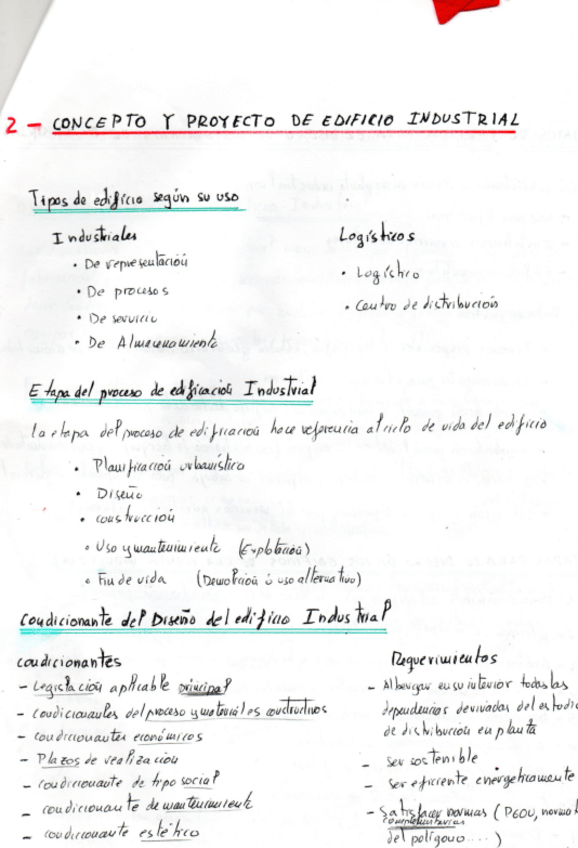 2 - CONCEPTO Y PROYECTO DE EDIFICIO INDUSTRIAL
Tipos de edificio según su uso
Industriales
· De representación
· De procesos
· De servicio
· De Almacenamiento
Logísticos
· Logístico
· Centro de distribución
Etapa del proceso de edificación Industrial
la etapa del proceso de edificación hace referencia al ciclo de vida del edificio
· Planificación urbanística
· Diseño
· construcción
· Uso y mantenimiento (Explotación)
· Fin de vida (Demolición ó uso alternativo)
Condicionante del Diseño del edificio Industrial
condicionantes
- Legislación aplicable principal
- condicionantes del proceso y materiales constructivos
- condicionantes económicos
- Plazos de realización
- condicionante de tipo social
- condicionante de mantenimiento
- condicionante estético
Requerimientos
- Albergar en su interior todas las
dependencias derivadas del estudio
de distribución en planta
- ser sostenible
- ser eficiente energéticamente
- Satisfacer normas (PGOU,
complementarias
del polígono....)